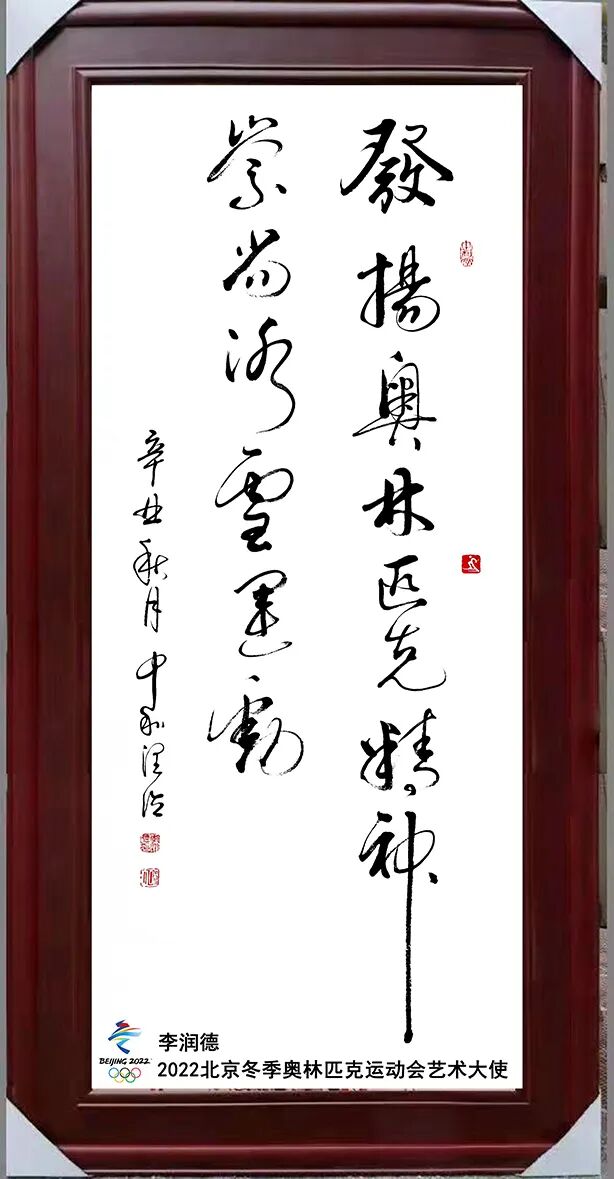 發揚奧林匹克精神
崇尚冰雪運動
辛丑秋月中和潤德
BEIJING 2022
李润德
2022北京冬季奥林匹克运动会艺术大使